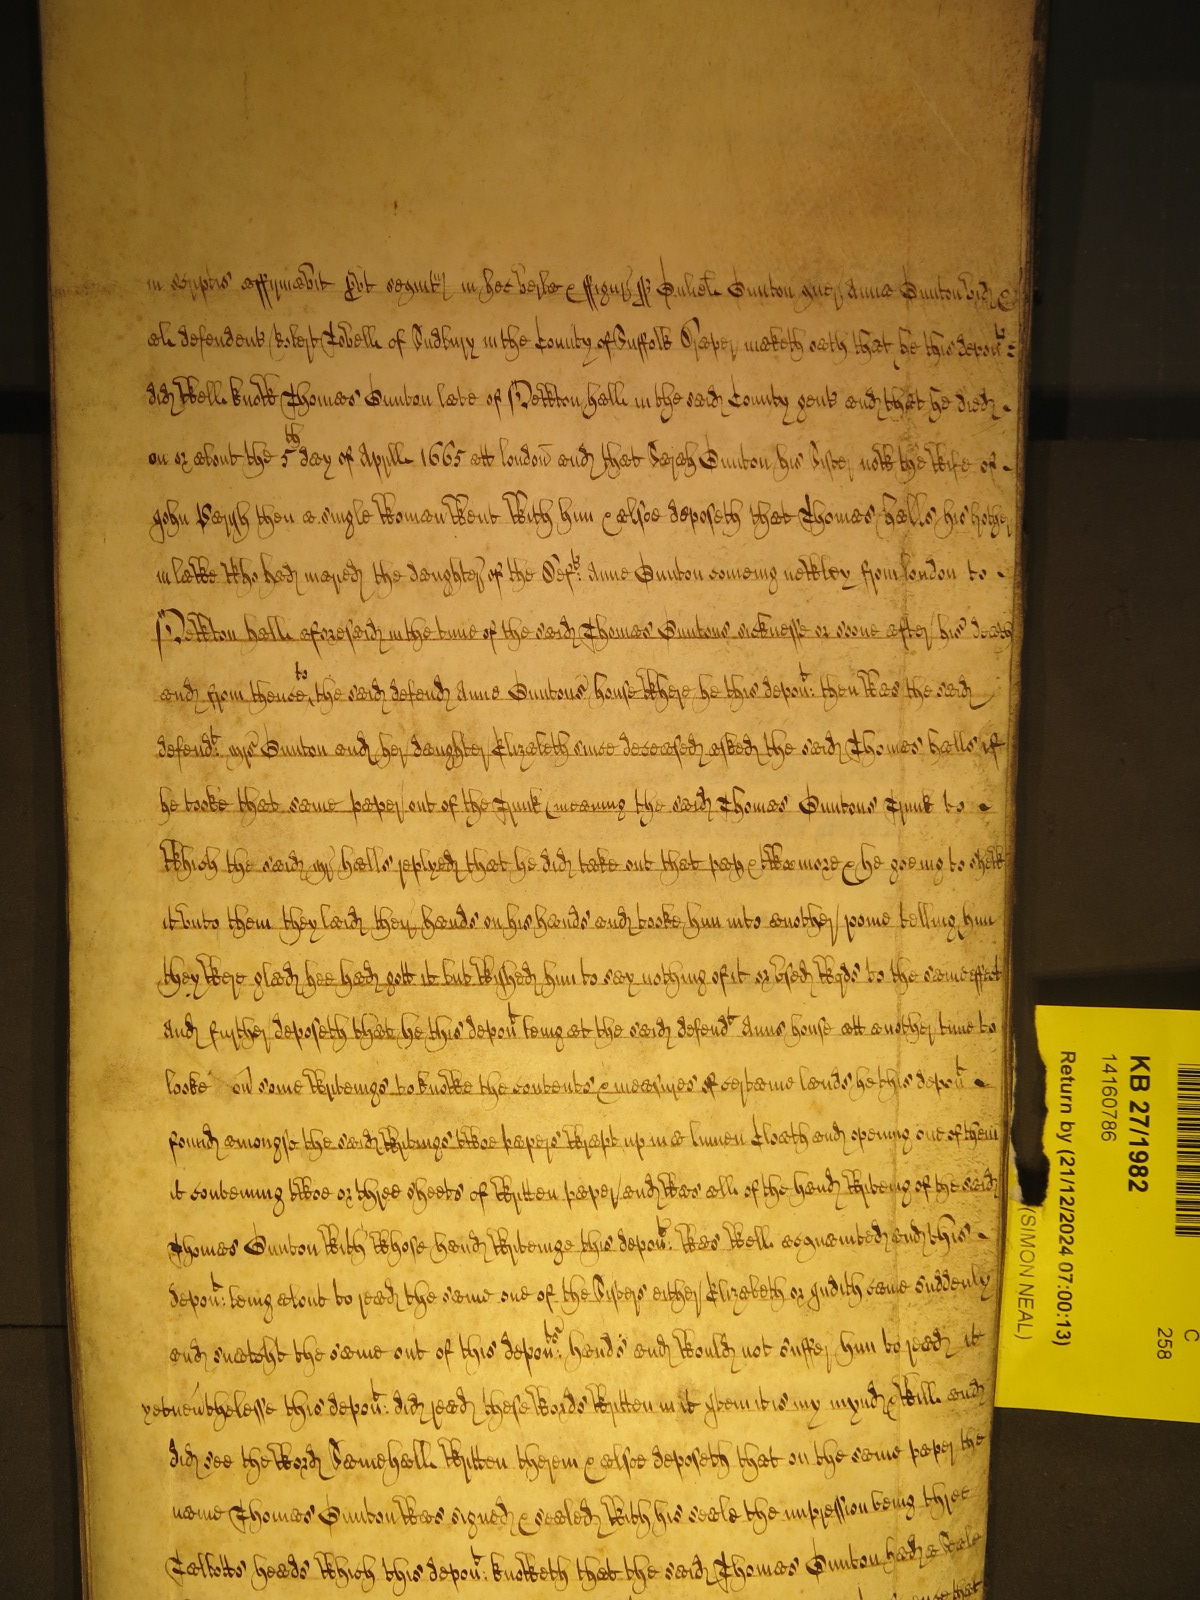 in scriptis affirmavit p̱ut sequitr in hec verba & figur ss Guliel Gunton quer Anna Gunton vid &
al defendents Robert Isbell of Sudbury in the County of Suffolk Draper maketh oath that he this depont
did well know Thomas Gunton late of Newton hall in the said County gent and that he died
on or about the 5th day of Aprill 1665 att london and that Sarah Gunton his Sister now the wife of
John Parish then a single woman went with him & alsoe deposeth that Thomas halls his brother
in lawe who had maried the daughter of the Deft: Anne Gunton comeing newley from london to
Newton hall aforesaid in the time of the said Thomas Guntons sicknesse or soone after his death
and from thence to the said defend Anne Guntons house where he this depont: then was the said
defendt: Mrs Gunton and her daughter Elizabeth since deceased asked the said Thomas halls if
he tooke that same paper out of the Trunk (meaning the said Thomas Guntons Trunk to
which the said Mr halls replyed that he did take out that pap & twoe more & he goeing to shew
it unto them they laid their hands on his hands and tooke him into another roome telling him
they were glad hee had gott it but wished him to say nothing of it or used words to the same effect
And further deposeth that he this depont being at the said defendt Anns house att another time to
looke on some writeings to knowe the contents & measures of certaine lands he this depont
found amongst the said writings twoe papers wrapt up in a linnen Cloath and opening one of them
it conteining twoe or three sheets of written paper and was all of the hand writeing of the said
Thomas Gunton with whose hand writeinge this depont: was well acquainted and this
depont: being about to read the same one of the Sisters either Elizabeth or Judith came suddenly
and snatcht the same out of this deponts: hands and would not suffer him to read it
yet neverthelesse this depont: did read these words written in it Item it is my mynd & will and
did see the word Samehall written therein & alsoe deposeth that on the same paper the
name Thomas Gunton was signed & sealed with his seale the impression being three
Talbotts heads which this depont: knoweth that the said Thomas Gunton had a Seale
KB 27/1982
14160786
Return by (21/12/2024 07:00:13)
(SIMON NEAL)
C
258